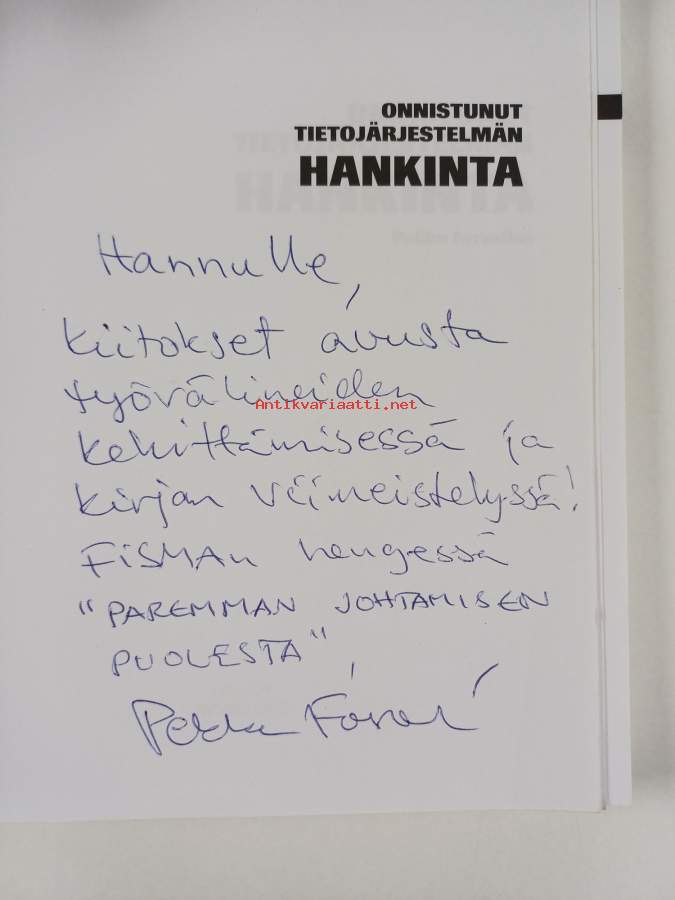 ONNISTUNUT
TIETOJÄRJESTELMÄN
HANKINTA
Hannulle,
kiitokset avusta
työvälineiden
Antikvariaatti.net
kehittämisessä ja
kirjan viimeistelyssä!
FISMAn hengessä
"PAREMMAN JOHTAMISEN
PUOLESTA",
Pekka